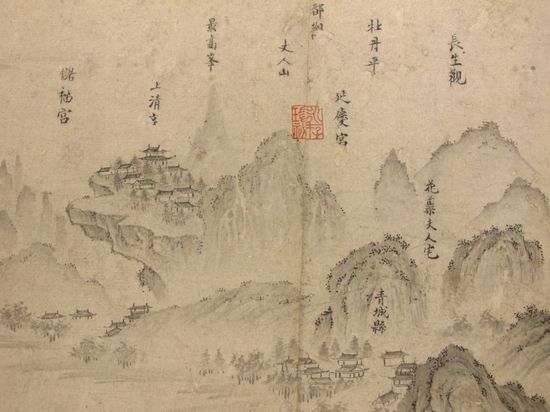 長生觀
牡丹平
都
丈人山
最高峯
上清宮
儲福宮
延慶宮
花蘂夫人宅
青城縣